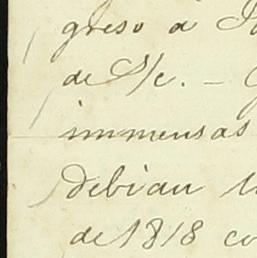 greso a
de S/e. —
immensas
debian
de 1818 co